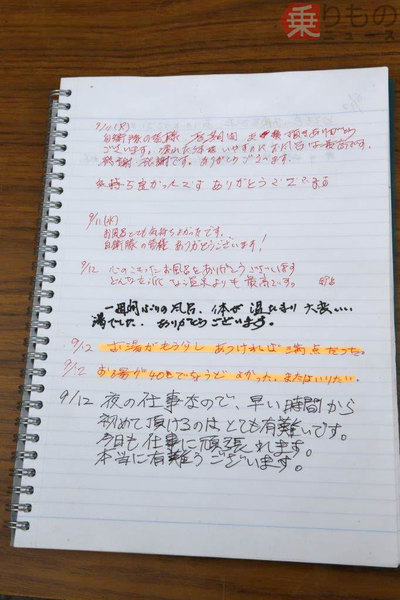 乗りもの
ニュース
自衛隊の皆様 長期間 頂きありがとう
ございます。疲れた体を いやすのに お風呂は最高です。
感謝 感謝です。ありがとうございます。
気持ち良かったです ありがとうございます
9/11(水)
お風呂とても気持ちよかったです。
自衛隊の皆様 ありがとうございます!
9/12 心のこもったお風呂をありがとうございます
どんな 温泉よりも最高です。
一週間ぶりの風呂、体が温たまり大変いい
湯でした。ありがとうございます。
9/12 お湯がもう少しあつければ満点だった。
9/12 お湯が40°でちょうどよかった。またはいりたい。
9/12 夜の仕事なので、早い時間から
初めて頂けるのはとても有難いです。
今日も仕事に頑張れます。
本当に有難うございます。